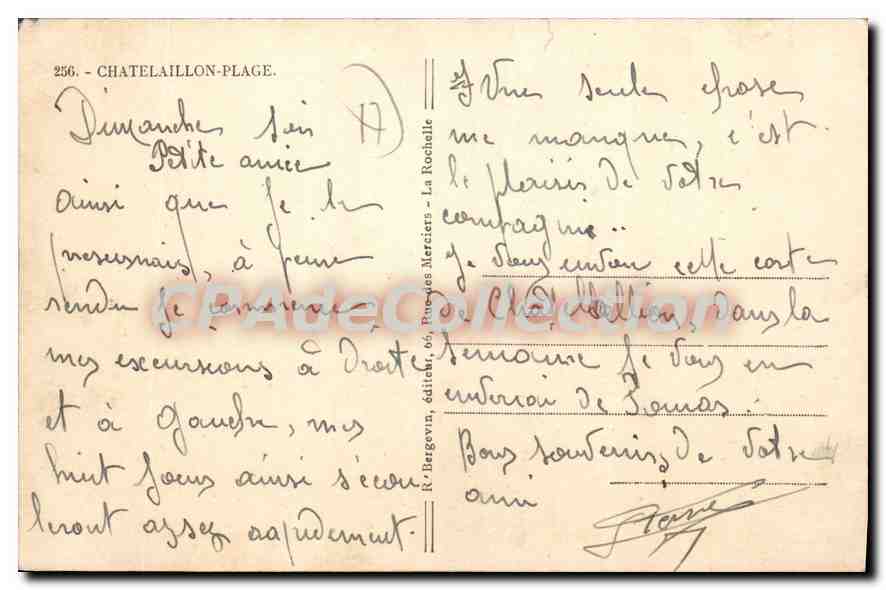 256. - CHATELAILLON-PLAGE.
Dimanche soir
Petite amie
ainsi que je le
présumais, à peine
rendu je commence
mes excursions à Droite
et à Gauche, mes
huit jours ainsi s'écou
leront assez rapidement.
R. Bergevin, éditeur, 66, Rue des Merciers - La Rochelle
Une seule chose
me manque, c'est
le plaisir de votre
compagnie..
Je vous envoie cette carte
de Châtellaillon, dans la
semaine je vous en
enverrai de
Bons souvenirs de votre
ami
Pierre
CPAdeCollection